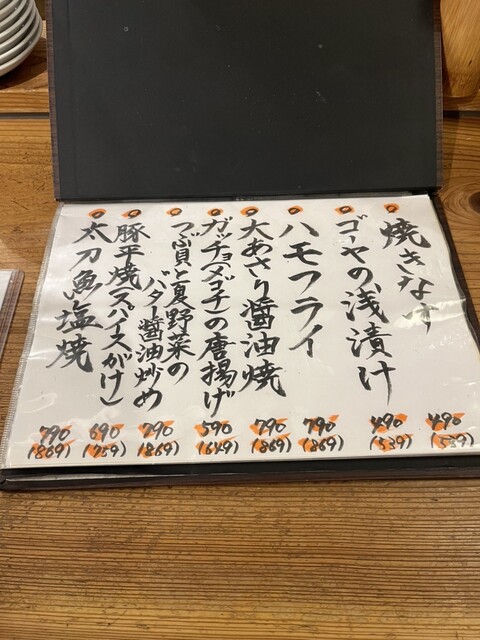 焼きなす
490
(539)
ゴーヤの浅漬け
490
(539)
ハモフライ
790
(869)
大あさり醤油焼
790
(869)
ガッチョ(メゴチ)の唐揚げ
590
(649)
つぶ貝と夏野菜の
バター醤油炒め
790
(869)
豚平焼(スパイスがけ)
690
(759)
太刀魚塩焼
790
(869)